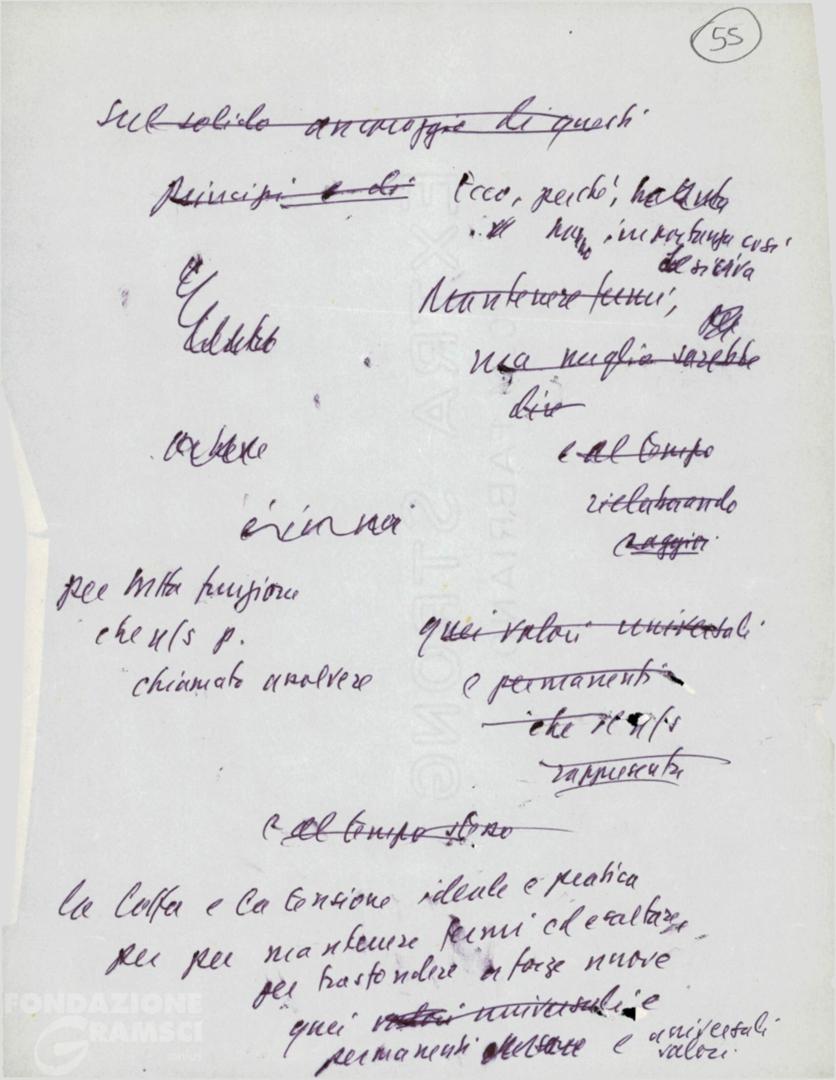 55
Sul solido ancoraggio di questi
principi e di
Ecco, perché,
hanno importanza così
decisiva
Mantenere fermi,
ma meglio sarebbe
dire
e al tempo
rielaborando
quei valori universali
e permanenti
che il n/s
rappresenta
per tutta funzione
che n/s p.
chiamato assolvere
e al tempo stesso
la lotta e la tensione ideale e pratica
per per mantenere fermi ed esaltare,
per trasfondere in forze nuove
quei valori universali e
permanenti e universali
valori.
FONDAZIONE
GRAMSCI
EXTRA STRONG
FABRIANO